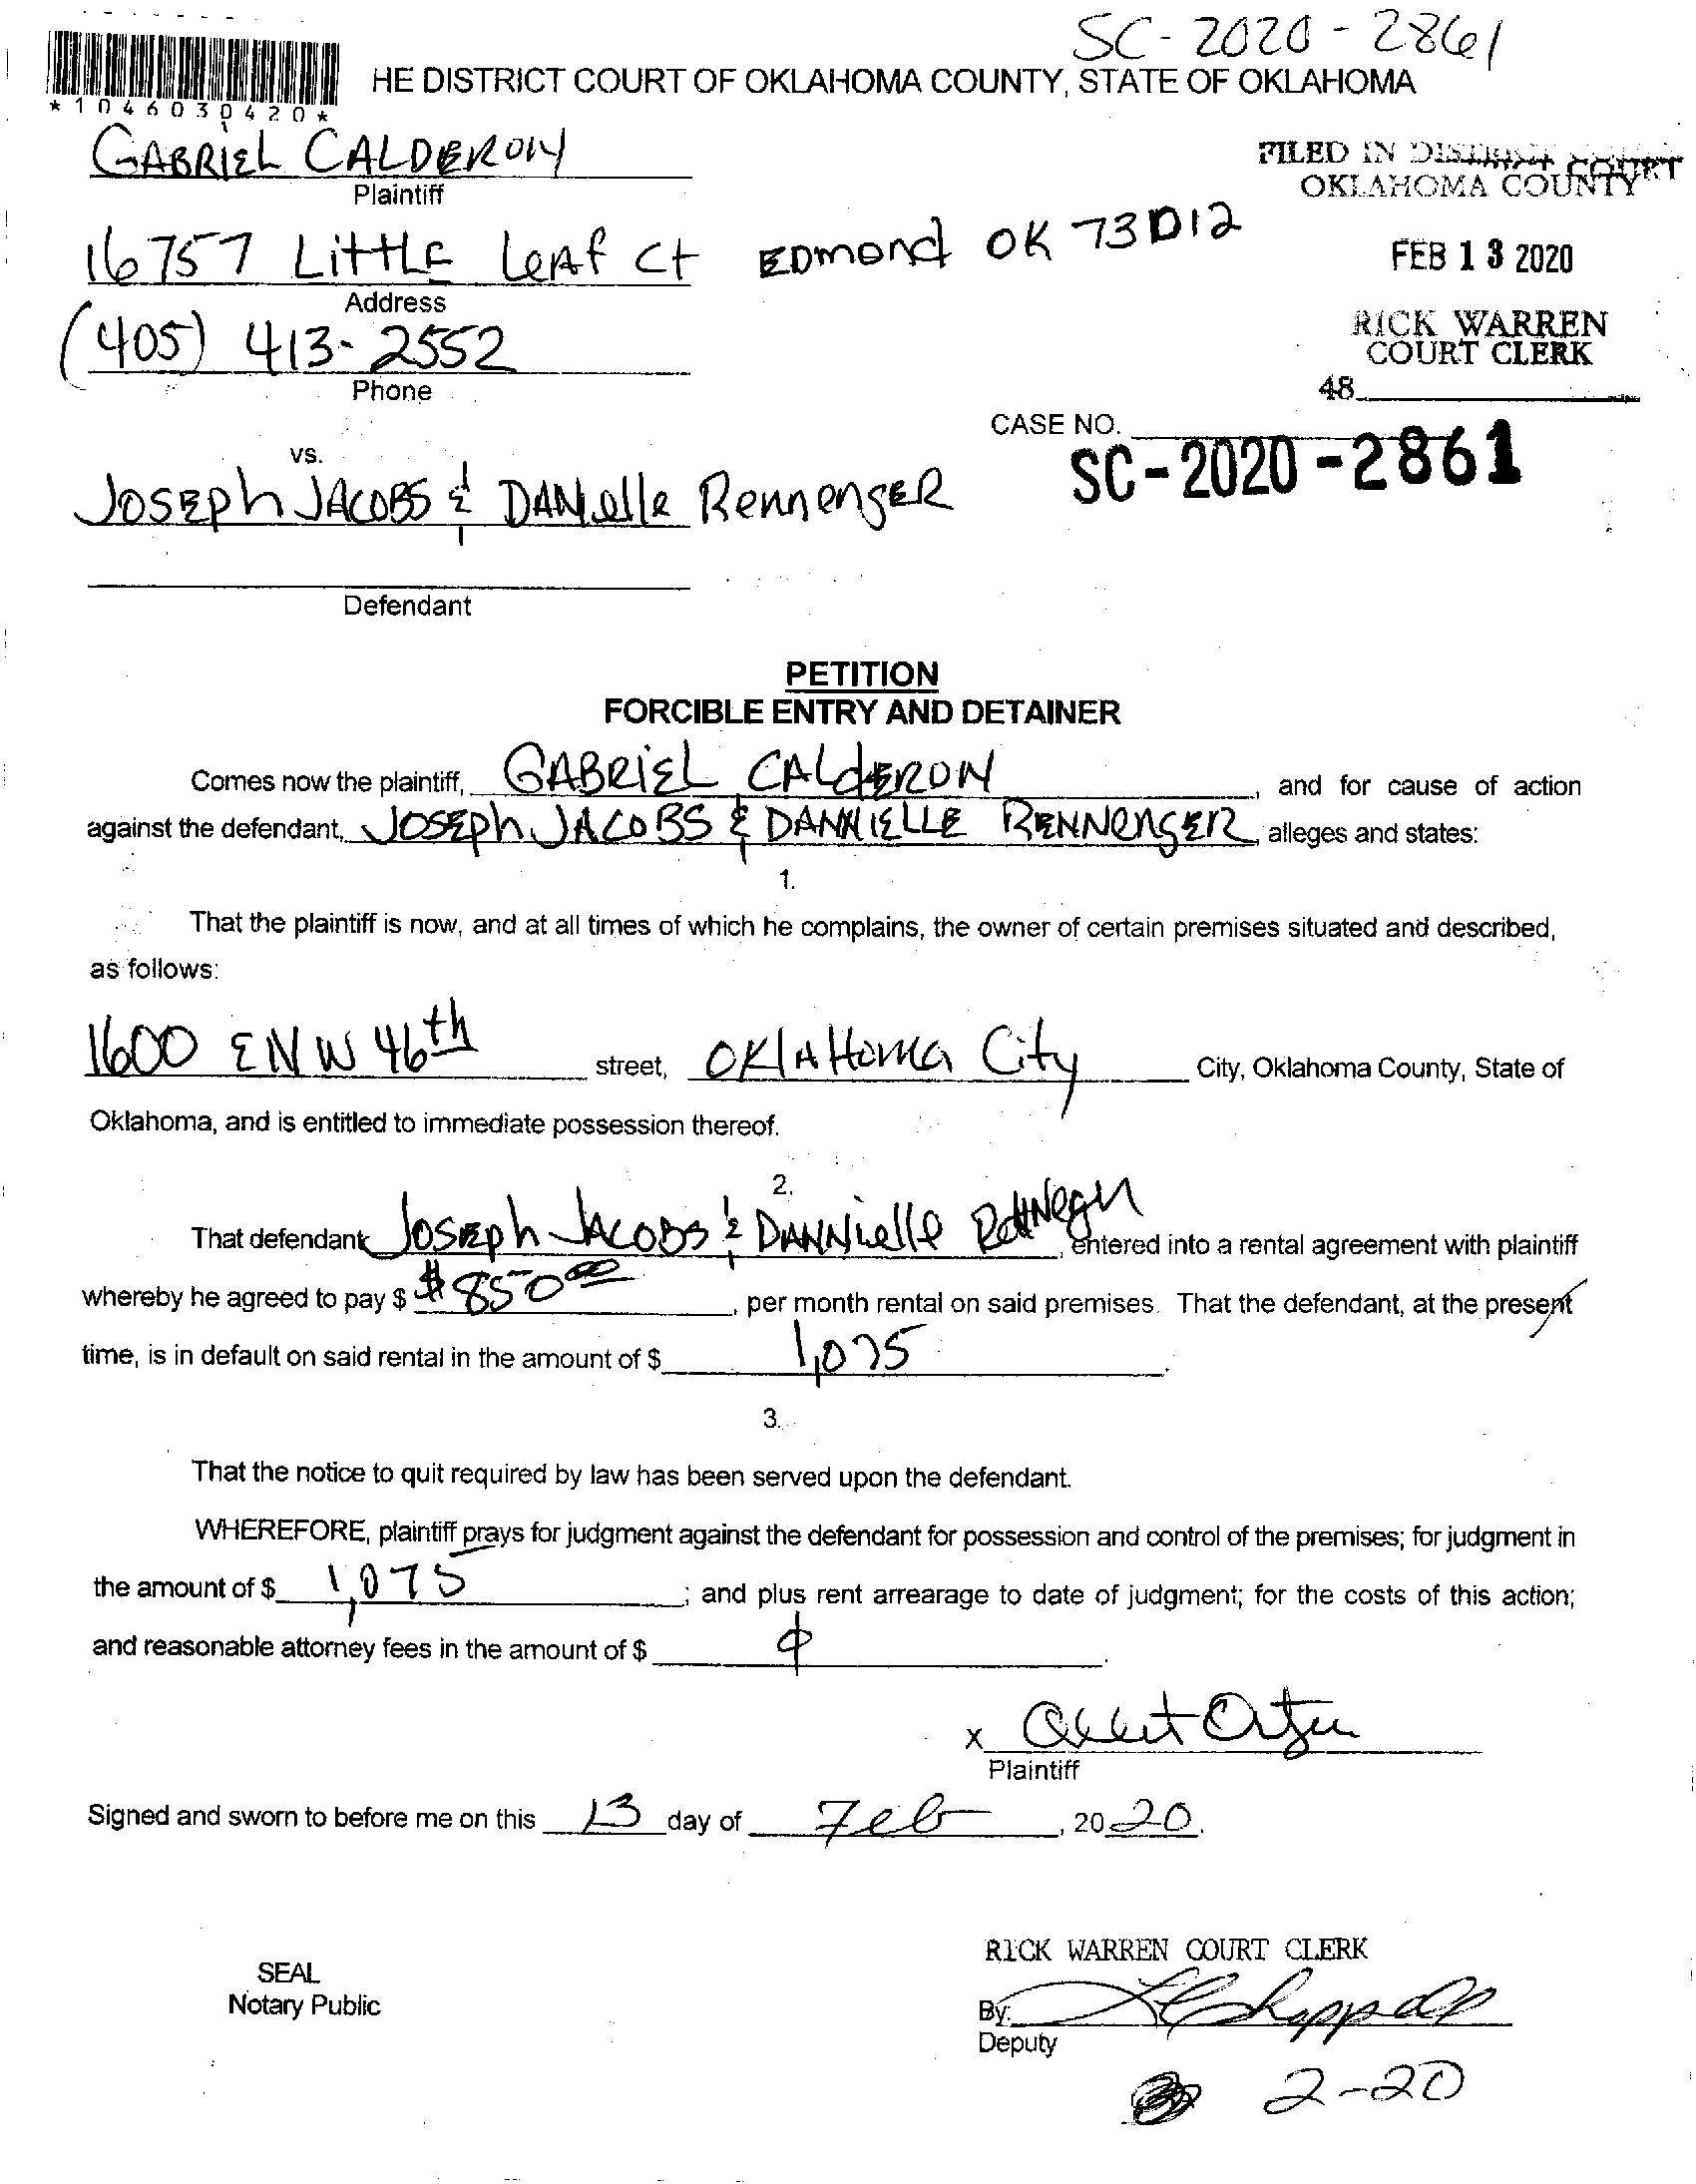 SC-2020-2861
*1046030420*
HE DISTRICT COURT OF OKLAHOMA COUNTY, STATE OF OKLAHOMA
GABRIEL CALDERON
Plaintiff
FILED IN DISTRICT COURT
OKLAHOMA COUNTY
16757 LittLE LeAf Ct EDmond OK 73012
FEB 13 2020
Address
(405) 413-2552
RICK WARREN
COURT CLERK
Phone
48
CASE NO.
SC-2020-2861
vs.
JOSEPh JACOBS & DANielle RennengER
Defendant
PETITION
FORCIBLE ENTRY AND DETAINER
Comes now the plaintiff, GABRIEL CALdERON, and for cause of action
against the defendant, JOSEPh JACOBS & DANNIELLE RENNENgER, alleges and states:
1.
That the plaintiff is now, and at all times of which he complains, the owner of certain premises situated and described,
as follows:
1600 E NW 46th street, OKlAHoma City City, Oklahoma County, State of
Oklahoma, and is entitled to immediate possession thereof.
2.
That defendant JosEph JACOBS & DANNielle, entered into a rental agreement with plaintiff
whereby he agreed to pay $ $850.00, per month rental on said premises. That the defendant, at the present
time, is in default on said rental in the amount of $ 1,075.
3.
That the notice to quit required by law has been served upon the defendant.
WHEREFORE, plaintiff prays for judgment against the defendant for possession and control of the premises; for judgment in
the amount of $ 1,075; and plus rent arrearage to date of judgment; for the costs of this action;
and reasonable attorney fees in the amount of $ ϕ.
X
Plaintiff
Signed and sworn to before me on this 13 day of Feb, 2020.
RICK WARREN COURT CLERK
SEAL
Notary Public
By:
Deputy
2-20